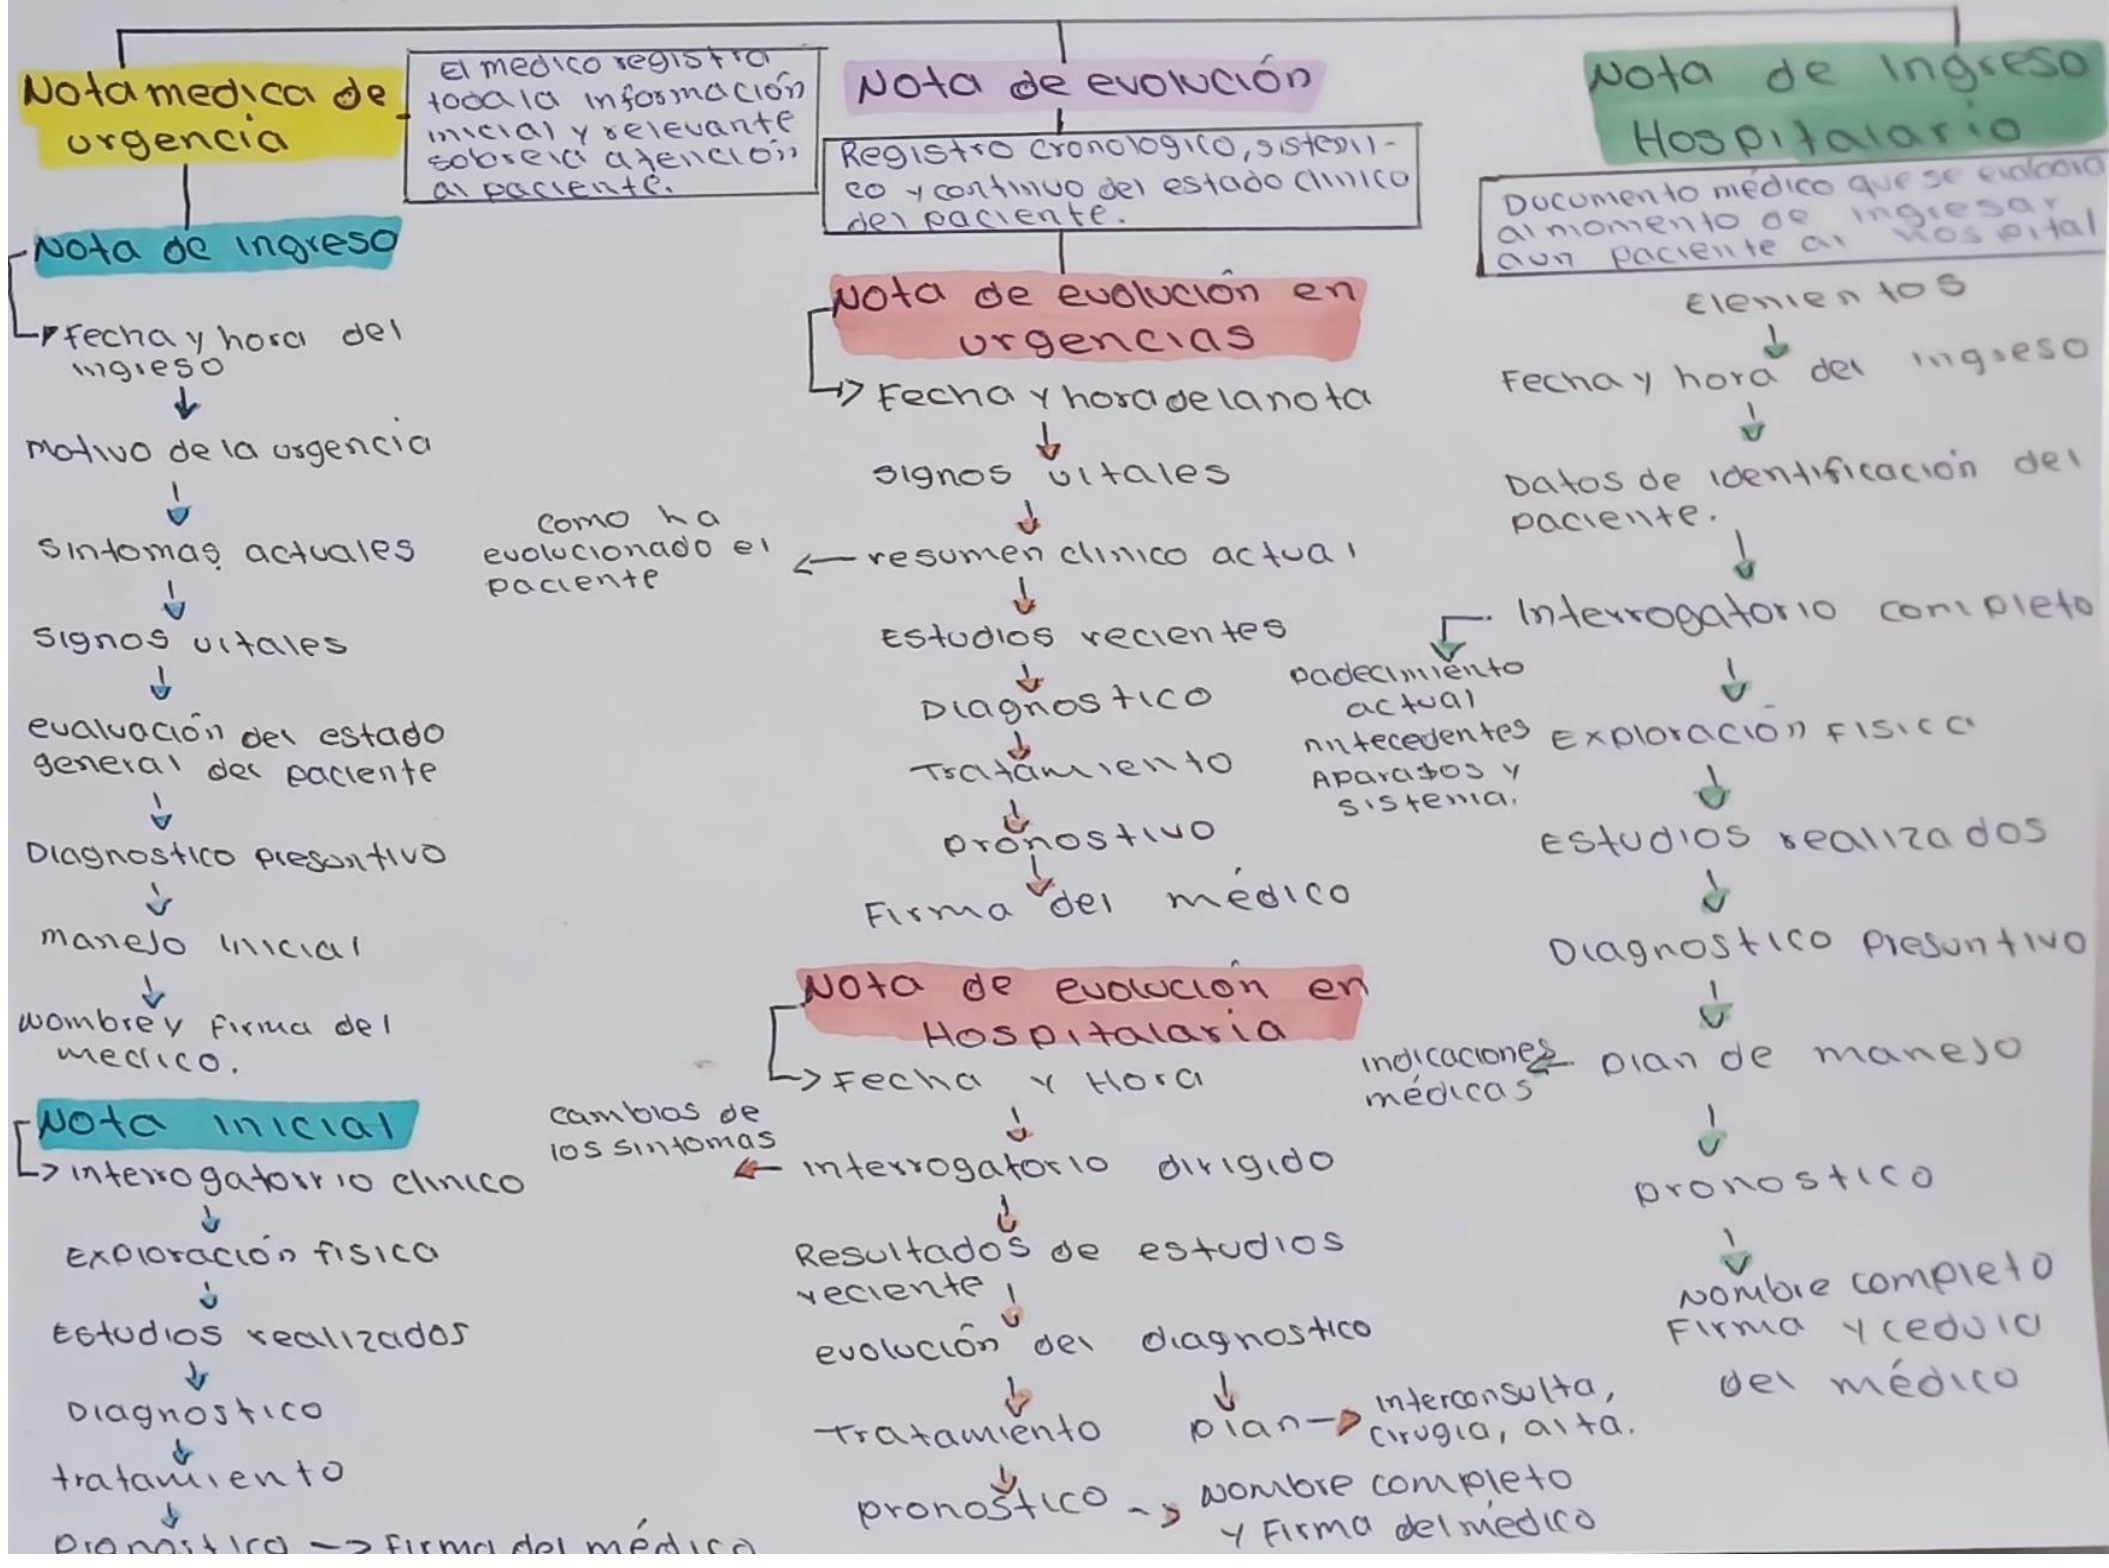 Nota medica de
urgencia
El medico registra
toda la información
inicial y relevante
sobre la atención
al paciente.
Nota de ingreso
Fecha y hora del
ingreso
Motivo de la urgencia
Sintomas actuales
Signos vitales
evaluación del estado
general del paciente
Diagnostico presuntivo
manejo inicial
Nombre y firma del
medico.
Nota inicial
interrogatorrio clinico
Exploración fisica
Estudios realizados
Diagnostico
tratamiento
Pronostico → Firma del médico
Nota de evolución
Registro cronologico, sistemi-
co y continuo del estado clinico
del paciente.
Nota de evolución en
urgencias
Fecha y hora de la nota
Signos vitales
resumen clinico actual
como ha
evolucionado el
paciente
Estudios recientes
Diagnostico
Tratamiento
pronostivo
Firma del médico
Nota de evolución en
Hospitalaria
Fecha y Hora
interrogatorio dirigido
cambios de
los sintomas
Resultados de estudios
reciente
evolución del diagnostico
Tratamiento
plan → interconsulta,
cirugia, alta.
pronostico → Nombre completo
y Firma del médico
Nota de Ingreso
Hospitalario
Documento médico que se elabora
al momento de ingresar
a un paciente al Hospital
Elementos
Fecha y hora del ingreso
Datos de identificación del
paciente.
Interrogatorio completo
padecimiento
actual
Antecedentes
Aparatos y
sistema.
Exploración Fisica
Estudios realizados
Diagnostico Presuntivo
plan de manejo
indicaciones
médicas
pronostico
Nombre completo
Firma y cedula
del médico